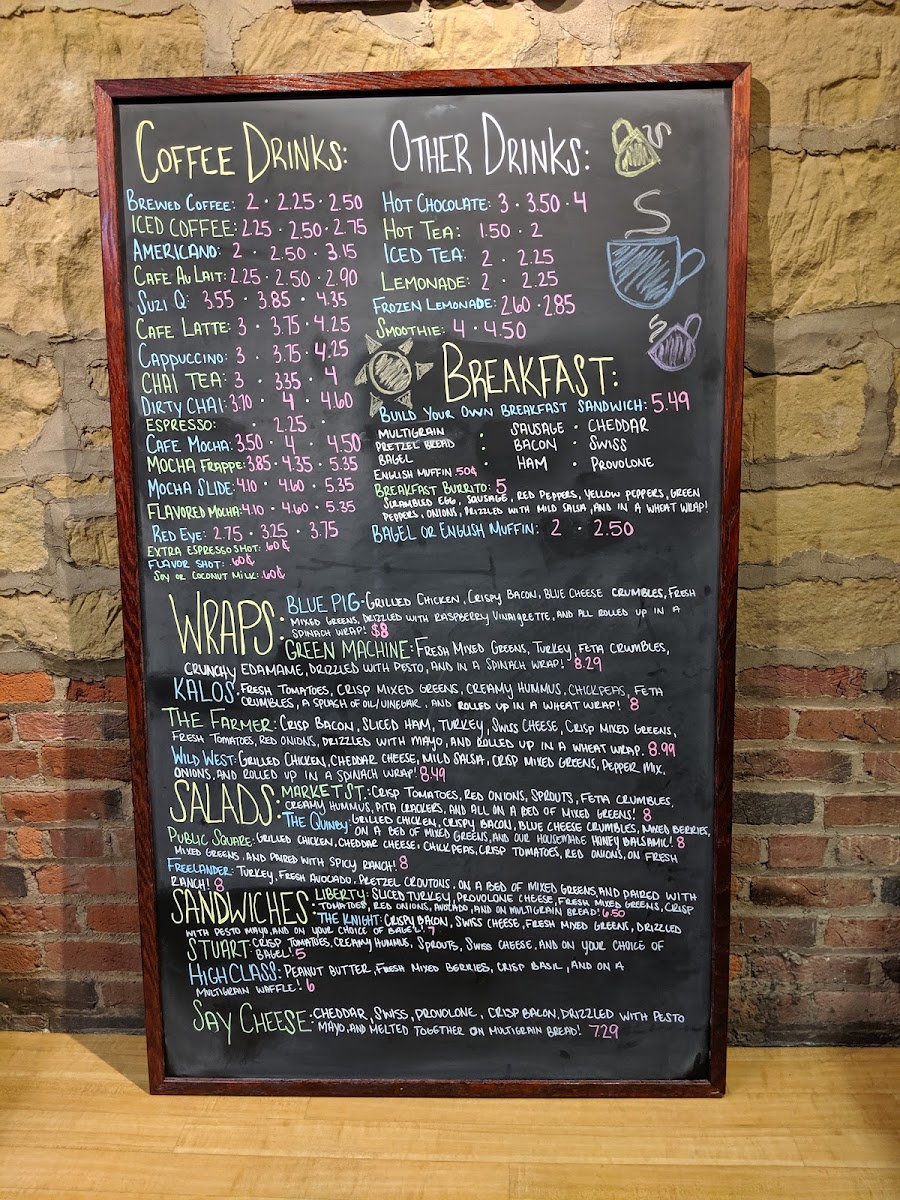 COFFEE DRINKS:
BREWED COFFEE: 2 · 2.25 · 2.50
ICED COFFEE: 2.25 · 2.50 · 2.75
AMERICANO: 2 · 2.50 · 3.15
CAFE AU LAIT: 2.25 · 2.50 · 2.90
SUZI Q: 3.55 · 3.85 · 4.35
CAFE LATTE: 3 · 3.75 · 4.25
CAPPUCCINO: 3 · 3.75 · 4.25
CHAI TEA: 3 · 3.35 · 4
DIRTY CHAI: 3.70 · 4 · 4.60
ESPRESSO: · 2.25 ·
CAFE MOCHA: 3.50 · 4 · 4.50
MOCHA FRAPPE: 3.85 · 4.35 · 5.35
MOCHA SLIDE: 4.10 · 4.60 · 5.35
FLAVORED MOCHA: 4.10 · 4.60 · 5.35
RED EYE: 2.75 · 3.25 · 3.75
EXTRA ESPRESSO SHOT: 60¢
FLAVOR SHOT: 60¢
SOY OR COCONUT MILK: .60¢
OTHER DRINKS:
HOT CHOCOLATE: 3 · 3.50 · 4
HOT TEA: 1.50 · 2
ICED TEA: 2 · 2.25
LEMONADE: 2 · 2.25
FROZEN LEMONADE: 2.60 · 2.85
SMOOTHIE: 4 · 4.50
BREAKFAST:
BUILD YOUR OWN BREAKFAST SANDWICH: 5.49
MULTIGRAIN · SAUSAGE · CHEDDAR
PRETZEL BREAD · BACON · SWISS
BAGEL · HAM · PROVOLONE
ENGLISH MUFFIN .50¢
BREAKFAST BURRITO: 5
SCRAMBLED EGG, SAUSAGE, RED PEPPERS, YELLOW PEPPERS, GREEN
PEPPERS, ONIONS, DRIZZLED WITH MILD SALSA, AND IN A WHEAT WRAP!
BAGEL OR ENGLISH MUFFIN: 2 · 2.50
WRAPS:
BLUE PIG: GRILLED CHICKEN, CRISPY BACON, BLUE CHEESE CRUMBLES, FRESH
MIXED GREENS, DRIZZLED WITH RASPBERRY VINAIGRETTE, AND ALL ROLLED UP IN A
SPINACH WRAP! $8
GREEN MACHINE: FRESH MIXED GREENS, TURKEY, FETA CRUMBLES,
CRUNCHY EDAMAME, DRIZZLED WITH PESTO, AND IN A SPINACH WRAP! 8.29
KALOS: FRESH TOMATOES, CRISP MIXED GREENS, CREAMY HUMMUS, CHICKPEAS, FETA
CRUMBLES, A SPLASH OF OIL/VINEGAR, AND ROLLED UP IN A WHEAT WRAP! 8
THE FARMER: CRISP BACON, SLICED HAM, TURKEY, SWISS CHEESE, CRISP MIXED GREENS,
FRESH TOMATOES, RED ONIONS, DRIZZLED WITH MAYO, AND ROLLED UP IN A WHEAT WRAP. 8.99
WILD WEST: GRILLED CHICKEN, CHEDDAR CHEESE, MILD SALSA, CRISP MIXED GREENS, PEPPER MIX,
ONIONS, AND ROLLED UP IN A SPINACH WRAP! 8.49
SALADS:
MARKET ST.: CRISP TOMATOES, RED ONIONS, SPROUTS, FETA CRUMBLES,
CREAMY HUMMUS, PITA CRACKERS, AND ALL ON A BED OF MIXED GREENS! 8
THE QUINBY: GRILLED CHICKEN, CRISPY BACON, BLUE CHEESE CRUMBLES, MIXED BERRIES,
ON A BED OF MIXED GREENS, AND OUR HOUSEMADE HONEY BALSAMIC! 8
PUBLIC SQUARE: GRILLED CHICKEN, CHEDDAR CHEESE, CHICKPEAS, CRISP TOMATOES, RED ONIONS, ON FRESH
MIXED GREENS, AND PAIRED WITH SPICY RANCH! 8
FREELANDER: TURKEY, FRESH AVOCADO, PRETZEL CROUTONS, ON A BED OF MIXED GREENS, AND PAIRED WITH
RANCH! 8
SANDWICHES:
LIBERTY: SLICED TURKEY, PROVOLONE CHEESE, FRESH MIXED GREENS, CRISP
TOMATOES, RED ONIONS, AVOCADO, AND ON MULTIGRAIN BREAD! 6.50
THE KNIGHT: CRISPY BACON, SWISS CHEESE, FRESH MIXED GREENS, DRIZZLED
WITH PESTO MAYO, AND ON YOUR CHOICE OF BAGEL! 7
STUART: CRISP TOMATOES, CREAMY HUMMUS, SPROUTS, SWISS CHEESE, AND ON YOUR CHOICE OF
BAGEL! 5
HIGH CLASS: PEANUT BUTTER, FRESH MIXED BERRIES, CRISP BASIL, AND ON A
MULTIGRAIN WAFFLE! 6
SAY CHEESE: CHEDDAR, SWISS, PROVOLONE, CRISP BACON, DRIZZLED WITH PESTO
MAYO, AND MELTED TOGETHER ON MULTIGRAIN BREAD! 7.29